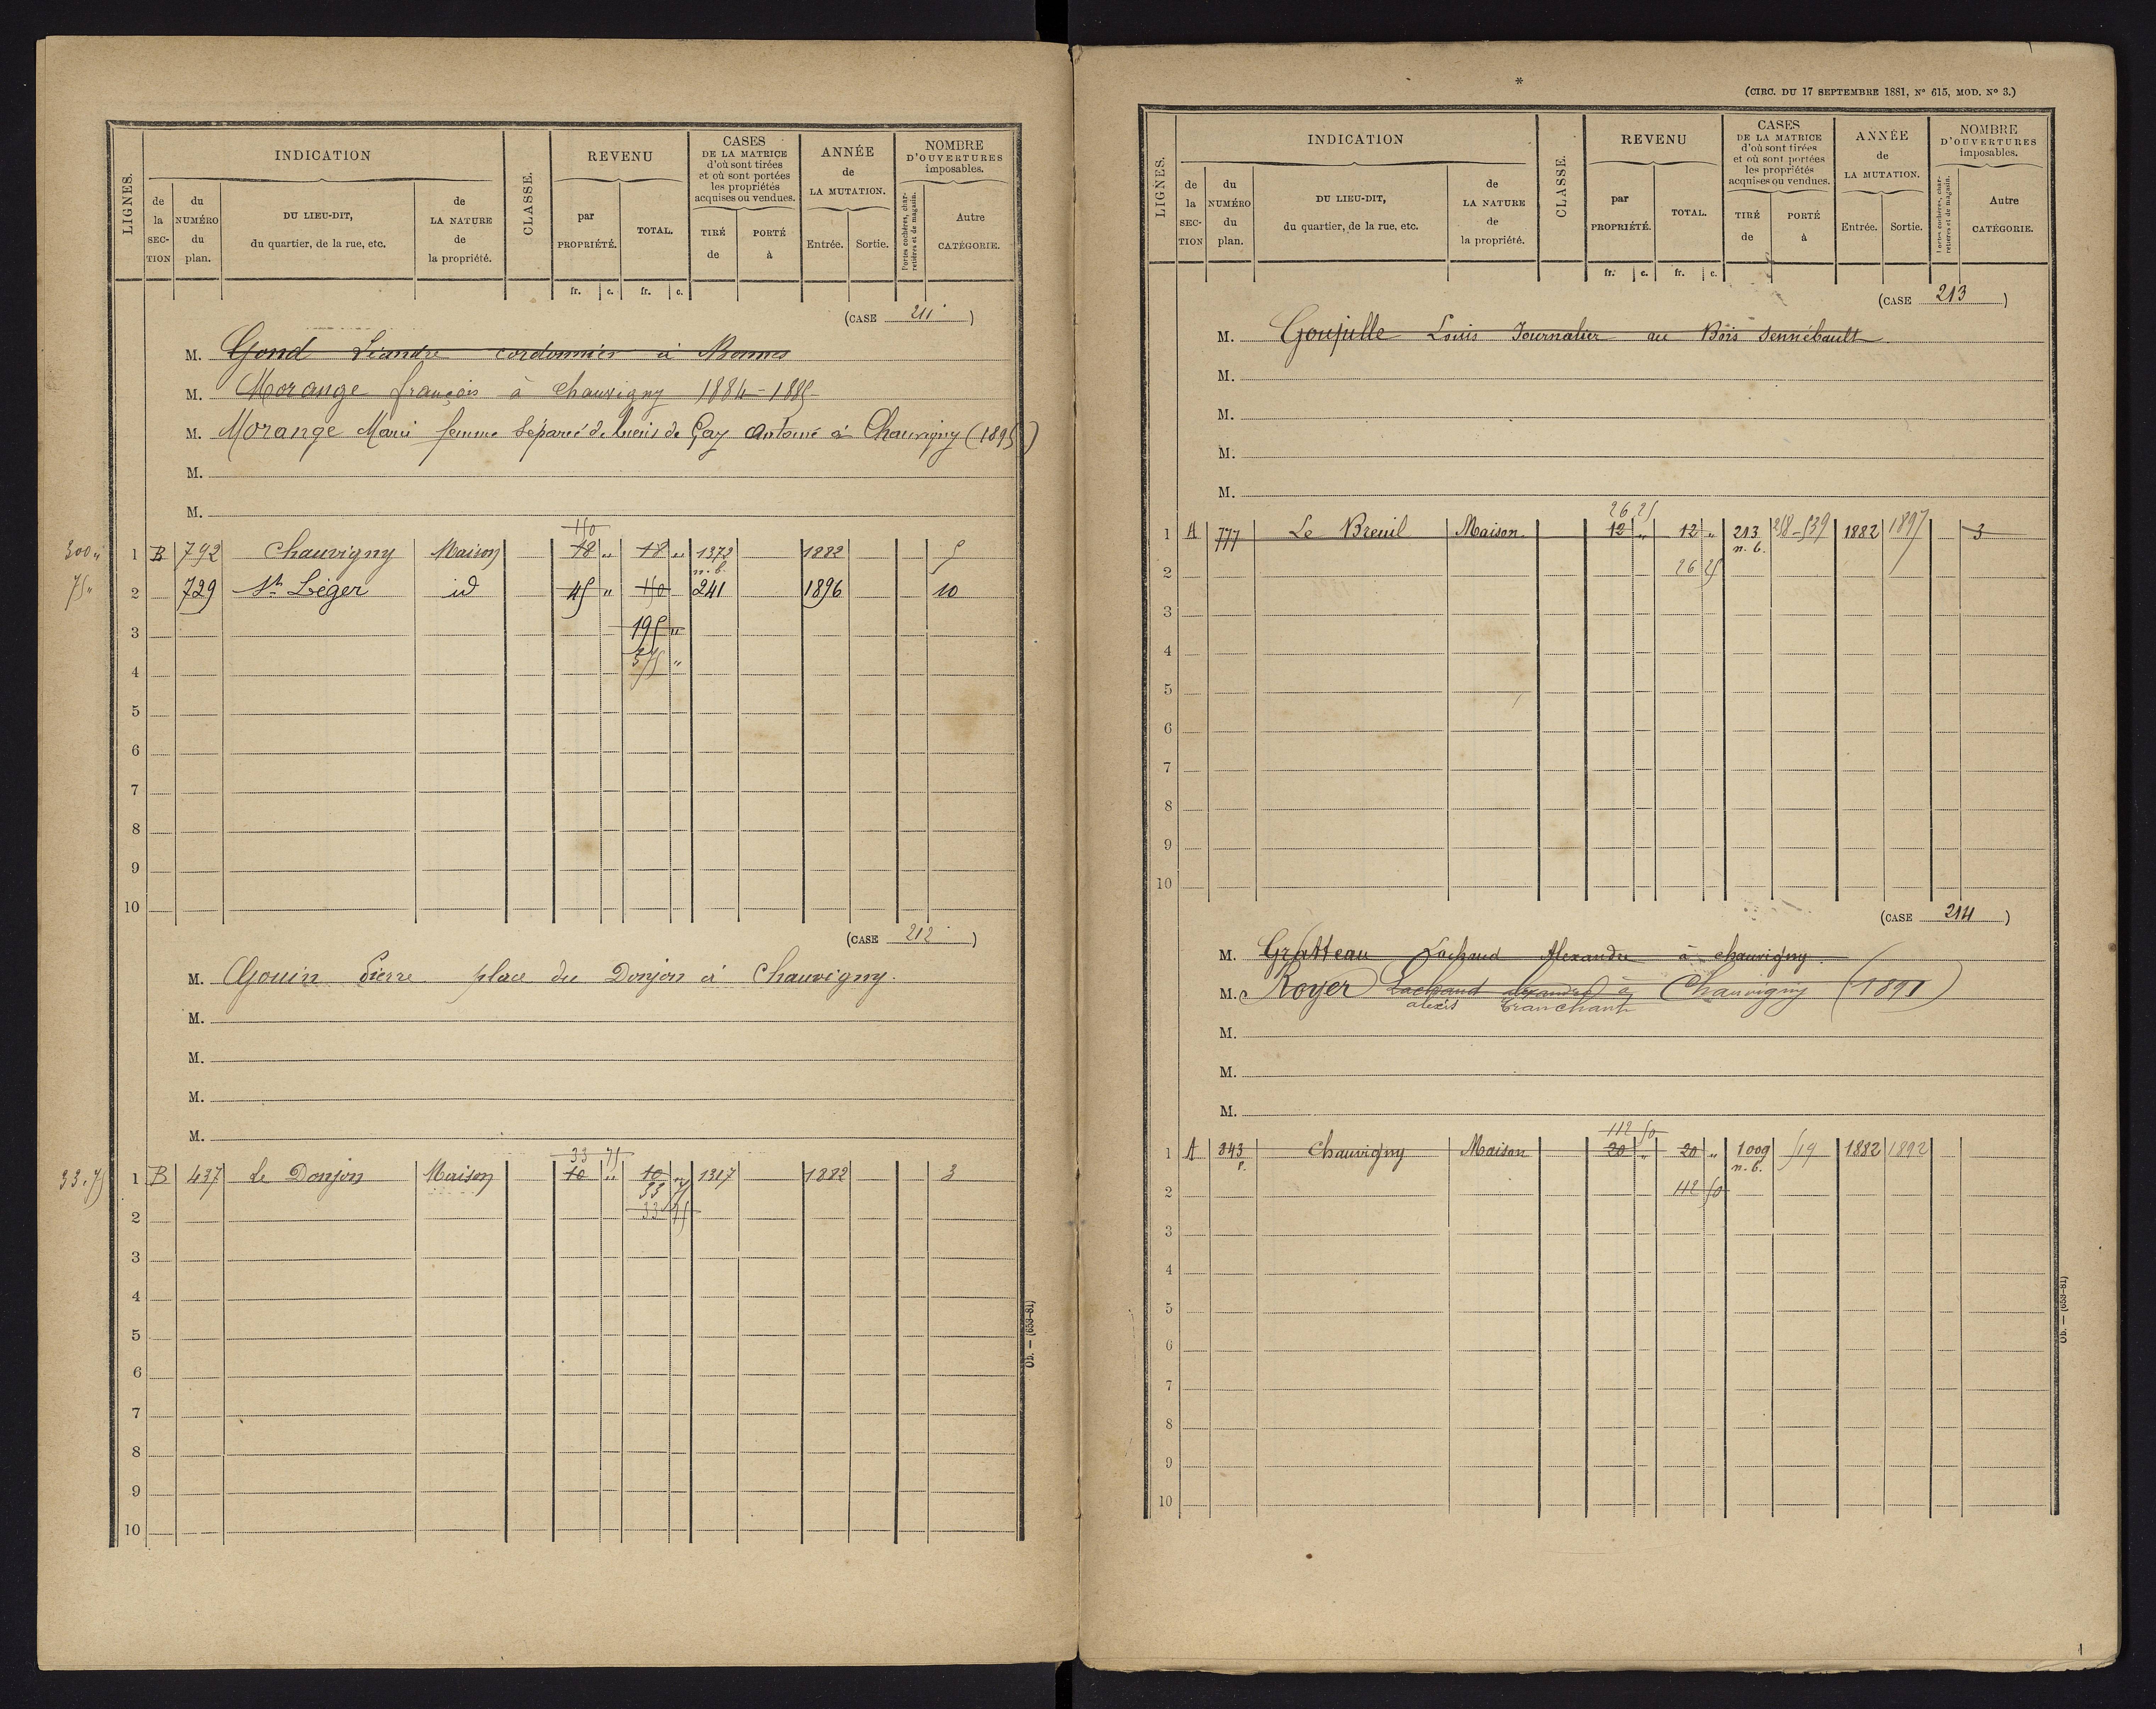 LIGNES.
INDICATION
de la SECTION
du NUMÉRO du plan.
DU LIEU-DIT, du quartier, de la rue, etc.
de LA NATURE de la propriété.
CLASSE.
REVENU
par PROPRIÉTÉ.
TOTAL.
CASES DE LA MATRICE d'où sont tirées et où sont portées les propriétés acquises ou vendues.
TIRÉ de
PORTÉ à
ANNÉE de LA MUTATION.
Entrée.
Sortie.
NOMBRE D'OUVERTURES imposables.
Portes cochères, charretières et de magasin.
Autre CATÉGORIE.
fr. c. fr. c.
(CASE 211)
M. Gond Léandre cordonnier à Bonnes
M. Morange françois à Chauvigny 1884-1885
M. Morange Marie femme séparée de biens de Gay Antoine à Chauvigny (1895)
M.
M.
150
300 " 1 B 792 Chauvigny Maison 18 " 18 " 1372 1882 5
n. b.
75 " 2 729 St Léger id 45 " 150 241 1896 10
3 195 "
4 375 "
5
6
7
8
9
10
(CASE 212)
M. Gouin Pierre place du Donjon à Chauvigny.
M.
M.
M.
M.
33 75
33.75 1 B 437 Le Donjon Maison 10 " 10 " 1317 1882 3
33 75
2 33 75
3
4
5
6
7
8
9
10
Ob. — (653-81)
*
(CIRC. DU 17 SEPTEMBRE 1881, N° 615, MOD. N° 3.)
LIGNES.
INDICATION
de la SECTION
du NUMÉRO du plan.
DU LIEU-DIT, du quartier, de la rue, etc.
de LA NATURE de la propriété.
CLASSE.
REVENU
par PROPRIÉTÉ.
TOTAL.
CASES DE LA MATRICE d'où sont tirées et où sont portées les propriétés acquises ou vendues.
TIRÉ de
PORTÉ à
ANNÉE de LA MUTATION.
Entrée.
Sortie.
NOMBRE D'OUVERTURES imposables.
Portes cochères, charretières et de magasin.
Autre CATÉGORIE.
fr. c. fr. c.
(CASE 213)
M. Goujulle Louis Journalier au Bois Sennebault
M.
M.
M.
M.
26 25
1 A 777 Le Breuil Maison 12 " 12 " 213 218-539 1882 1897 3
n. b.
2 26 25
3
4
5
6
7
8
9
10
(CASE 214)
M. Gratteau Lachaud Alexandre à chauvigny
M. Royer Lachaud alexandre à Chauvigny (1891)
alexis Tranchant
M.
M.
M.
112 50
1 A 343 Chauvigny Maison 20 " 20 " 1009 519 1882 1892
p. n. b.
2 112 50
3
4
5
6
7
8
9
10
Ob. — (653-81)
1